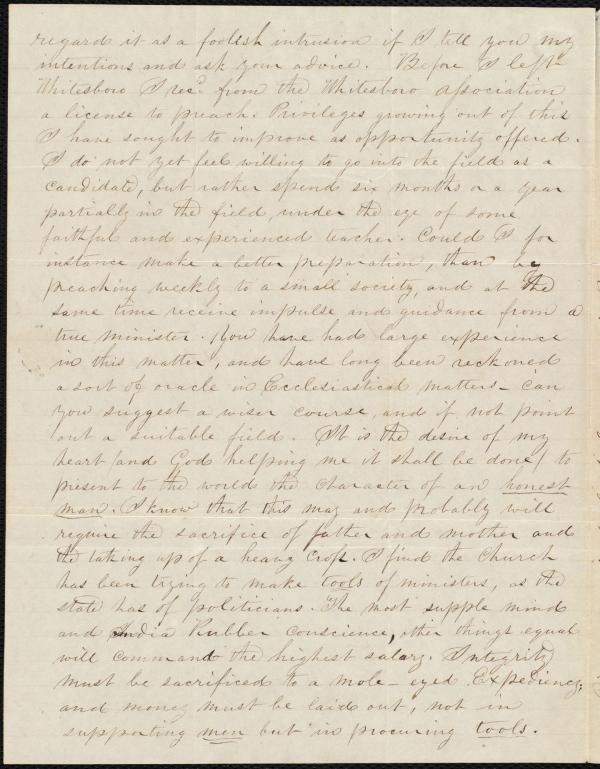 regard it as a foolish intrusion if I tell you my
intentions and ask your advice. Before I left
Whitesboro I recd from the Whitesboro Association
a license to preach. Privileges growing out of this
I have sought to improve as opportunity offered.
I do not yet feel willing to go into the field as a
candidate, but rather spend six months or a year
partially in the field, under the eye of some
faithful and experienced teacher. Could I for
instance make a better preparation, than by
preaching weekly to a small society, and at the
same time receive impulse and guidance from a
true minister. You have had large experience
in this matter, and have long been reckoned
a sort of oracle in Ecclesiastical matters - can
you suggest a wiser course, and if not point
out a suitable field. It is the desire of my
heart (and God helping me it shall be done) to
present to the world the character of an honest
man. I know that this may and probably will
require the sacrifice of father and mother and
the taking up of a heavy cross. I find the church
has been trying to make tools of ministers, as the
state has of politicians. The most supple mind
and India Rubber conscience, other things equal
will command the highest salary. Integrity
must be sacrificed to a mole-eyed Expediency,
and money must be laid out, not in
supporting men but in procuring tools.